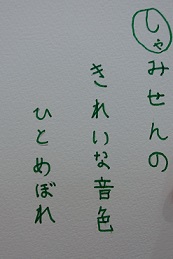 しゃみせんの
きれいな音色
ひとめぼれ